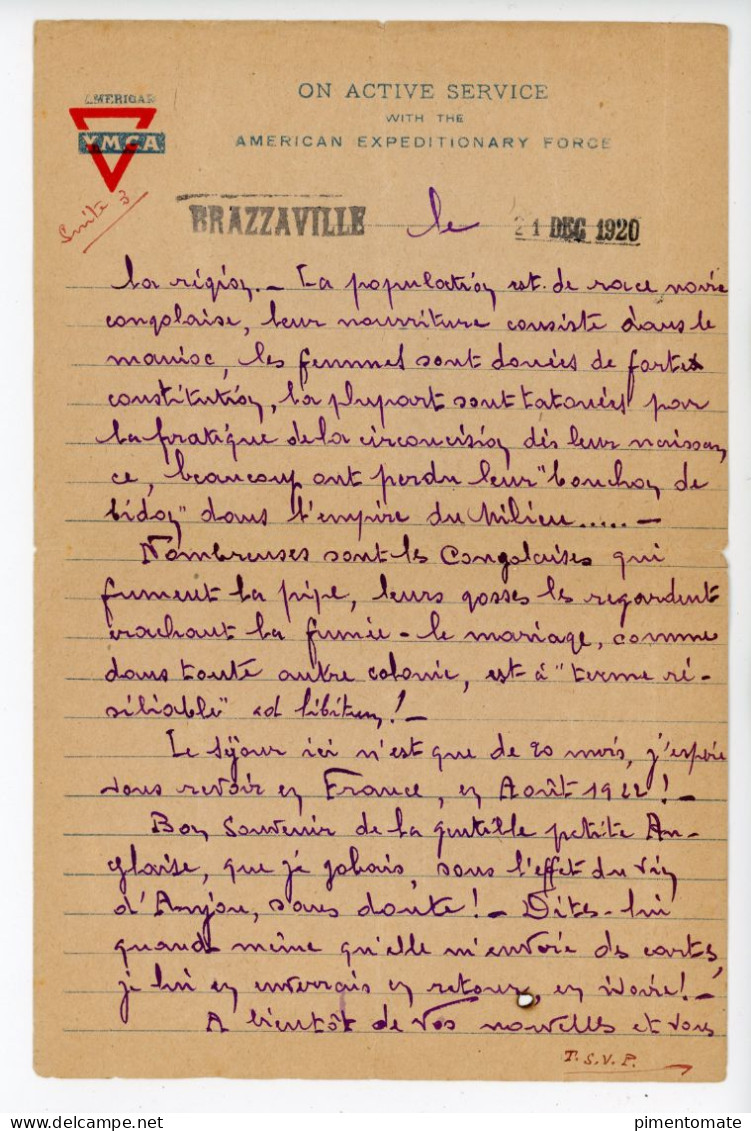 AMERICAN
YMCA
ON ACTIVE SERVICE
WITH THE
AMERICAN EXPEDITIONARY FORCE
Suite 3
BRAZZAVILLE le 21 DEC 1920
la région. — La population est de race noire
congolaise, leur nourriture consiste dans le
manioc, les femmes sont douées de fortes
constitution, la plupart sont tatouées par
la pratique de la circoncision dès leur naissan
ce, beaucoup ont perdu leur "bouchon de
bidon" dans l'empire du Milieu..... —
Nombreuses sont les Congolaises qui
fument la pipe, leurs gosses les regardent
crachant la fumée - le mariage, comme
dans toute autre colonie, est à "terme ré-
siliable" ad libitum! —
Le séjour ici n'est que de 20 mois, j'espère
vous revoir en France, en Août 1922! —
Bon souvenir de la gentille petite An-
glaise, que je gobais, sous l'effet du vin
d'Anjou, sans doute! — Dites-lui
quand même qu'elle m'envoie des cartes,
je lui en enverrais en retour, en ivoire! —
A bientôt de vos nouvelles et vous
T.S.V.P.
pimentomate